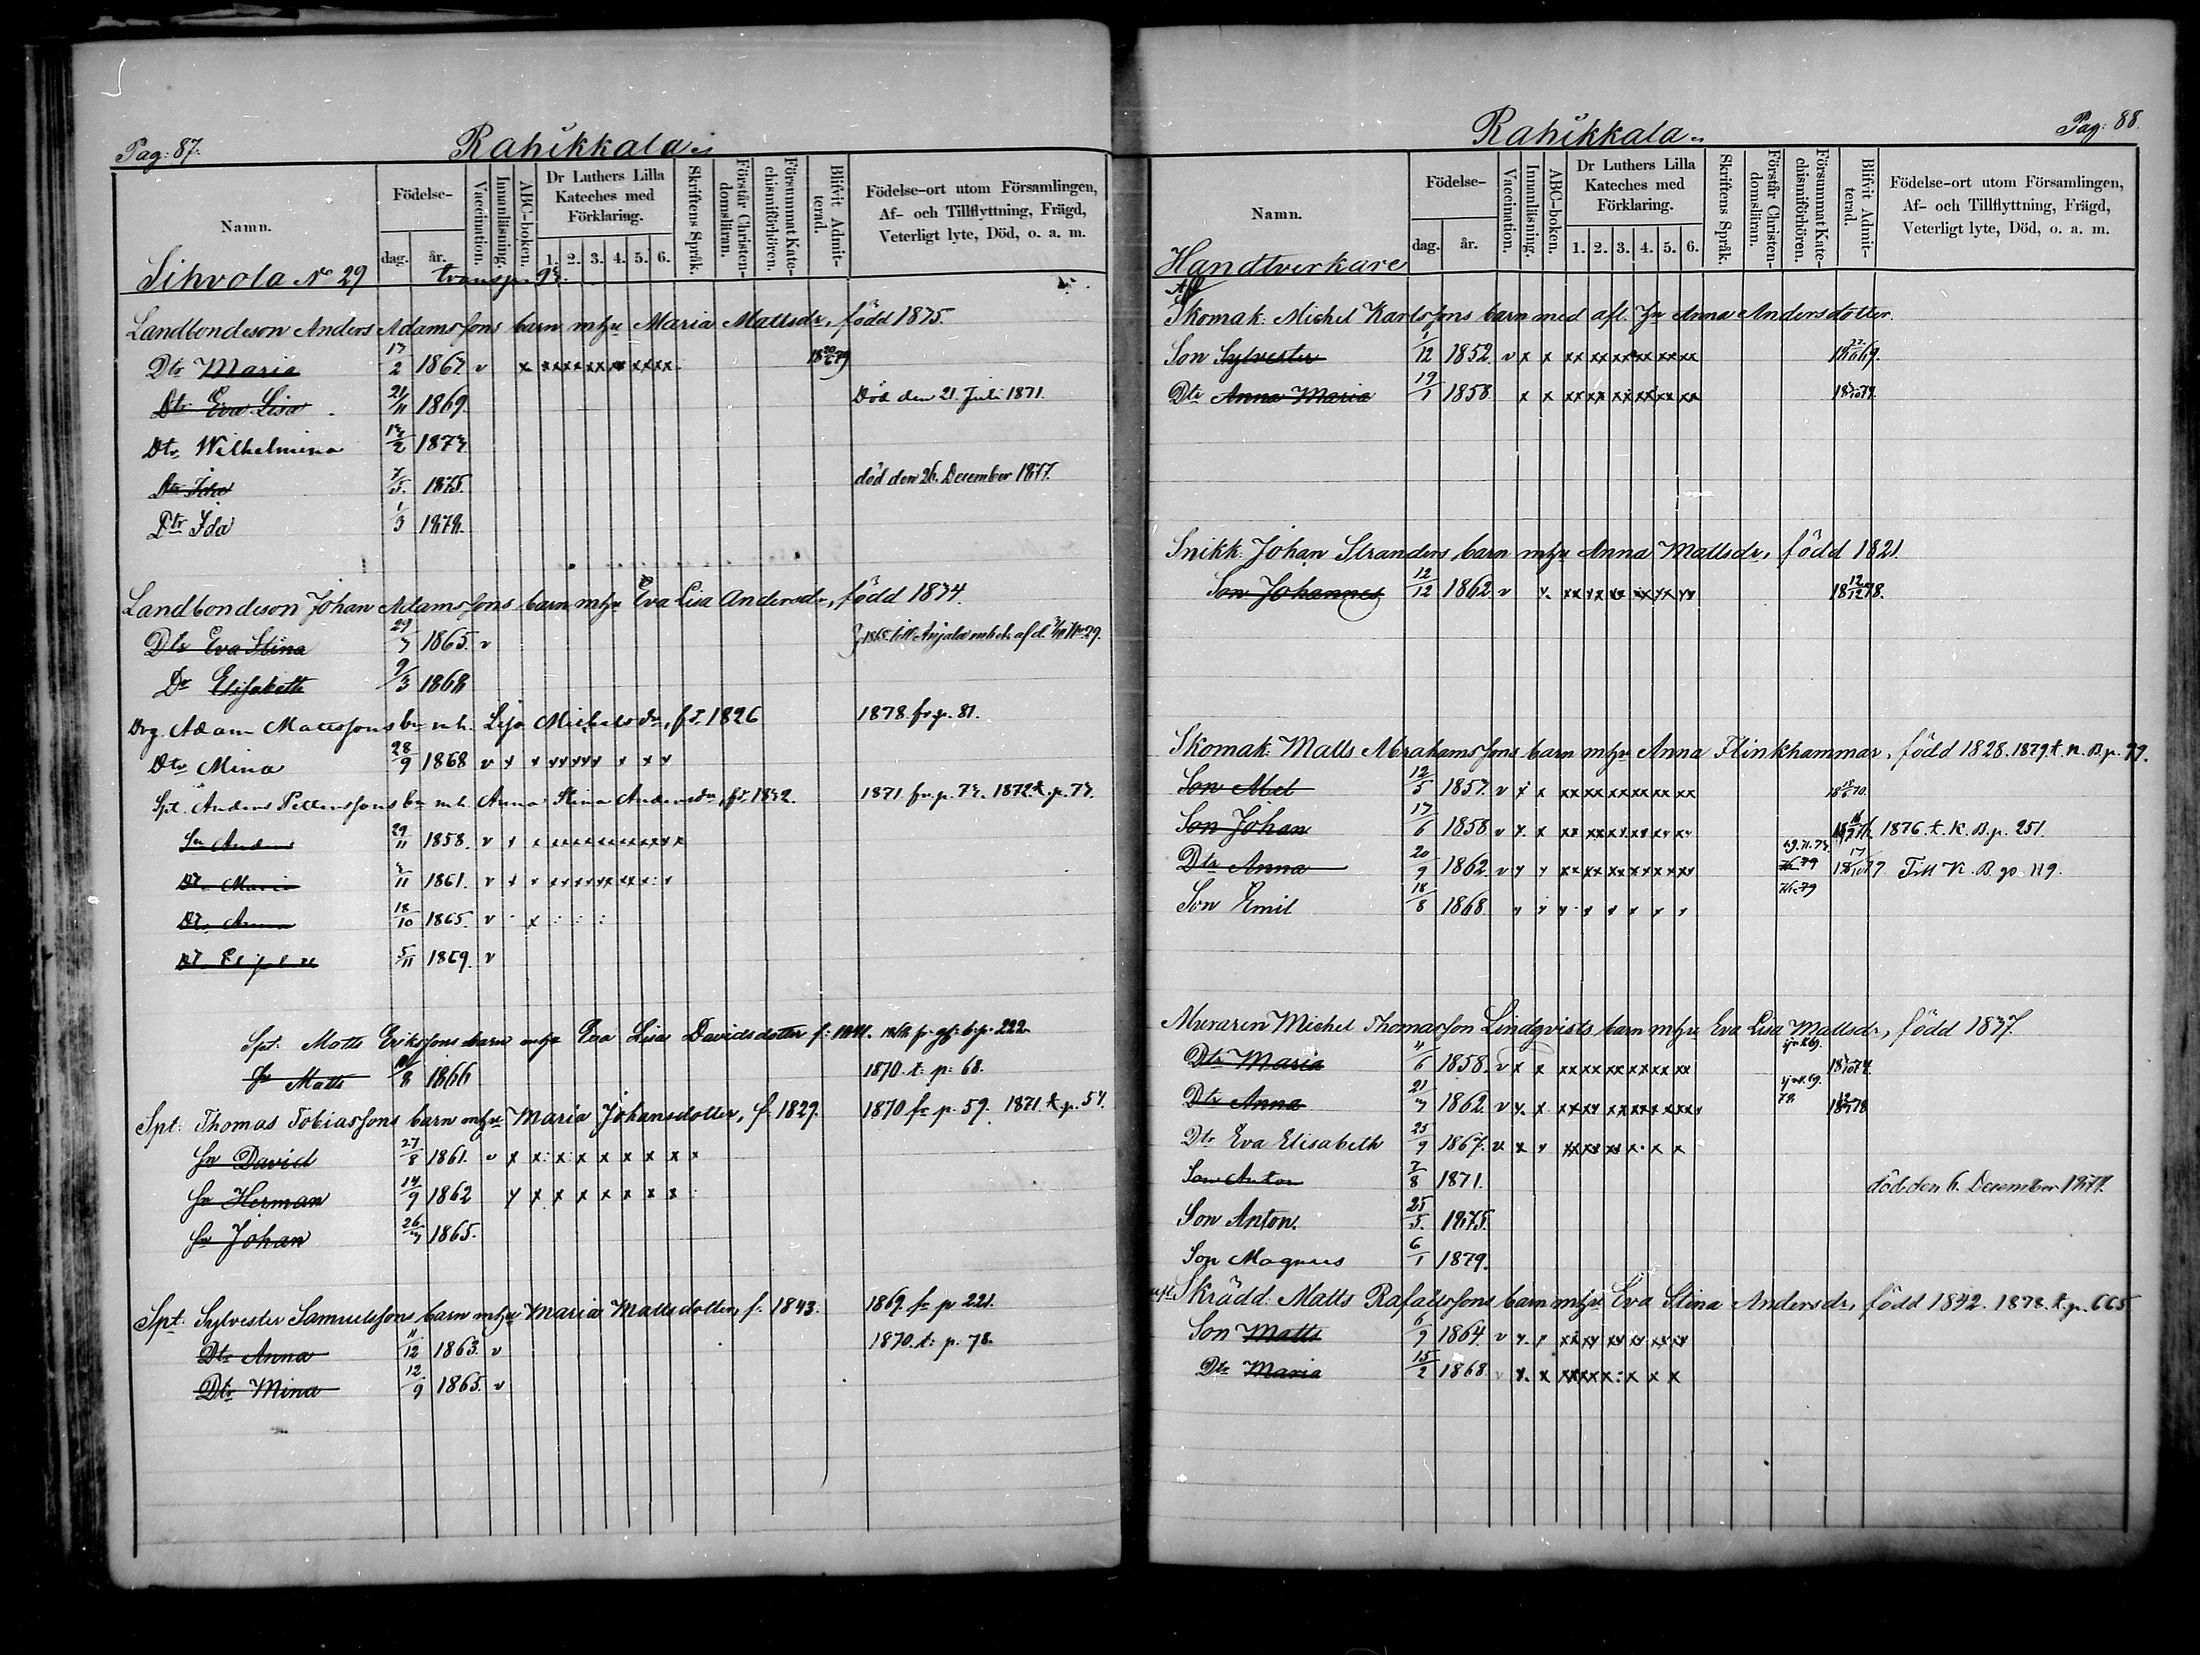 Pag: 87.
Rahikkala
Namn.
Födelse-
dag.
år.
Vaccination.
Innanläsning.
ABC-boken.
Dr Luthers Lilla Kateches med Förklaring.
1. 2. 3. 4. 5. 6.
Skriftens Språk.
Förstår Christendomsläran.
Försummat Katechismiförhören.
Blifvit Admitterad.
Födelse-ort utom Församlingen, Af- och Tillflyttning, Frägd, Veterligt lyte, Död, o. a. m.
Sihvola No 29 transp.
Landbondeson Anders Adamssons barn mhu Maria Mattsdr, född
Dtr Maria 2 1867 v x xx xx xx xx xx xx
Dtr Eva Lisa 21/11 1869 Död den 21 Juli 1871.
Dtr Wilhelmina 2 187
Dtr Ida 7/5 1875. död den 26 December 1877.
Dtr Ida 1/3 1878.
Landbondeson Johan Adamssons barn mhu Eva Lisa Andersdr, född
Dtr Eva Stina 29 1865. v till Anjala
Dr Elisabeth 9/3 1868
Adam Mattssons bn mh. Lisa Michelsdr, fd 1826 1878 fr. p. 81.
Dtr Mina 28/9 1868 v
Spt. Anders Pettersson bn mh. Anna Stina Andersdr, 1871 fr. p. 1872 t. p.
Sn Anders 29/11 1858. v
Dr. Maria 11 1861. v
Dr. Anna 18/10 1865. v x
Dr. 5/11 1869. v
Spt. Matts Erikssons barn mhu Eva Lisa Davidsdotter p. 222
Sn Matts 8 1866 1870. t. p. 68.
Spt. Thomas Tobiassons barn mhu Maria Johansdotter, f. 1829. 1870 fr p. 59. 1871 t. p. 57.
Sn David 27/8 1861. v x x x x x x x x
Sn Herman 14/9 1862 x x x x x x x
Sn Johan 26 1865.
Spt. Sylvester Samuelssons barn mhu Maria Mattsdotter f. 1843. 1869 fr p 221.
Dtr Anna 11/12 1863. v 1870. t. p. 78.
Dtr Mina 12/9 1865. v
Pag: 88.
Rahikkala
Namn.
Födelse-
dag.
år.
Vaccination.
Innanläsning.
ABC-boken.
Dr Luthers Lilla Kateches med Förklaring.
1. 2. 3. 4. 5. 6.
Skriftens Språk.
Förstår Christendomsläran.
Försummat Katechismiförhören.
Blifvit Admitterad.
Födelse-ort utom Församlingen, Af- och Tillflyttning, Frägd, Veterligt lyte, Död, o. a. m.
Handtverkare
Afl
Skomak. Michel Karlssons barn med afl. hu Anna Andersdotter.
Son Sylvester 1/12 1852. v x x xx xx xx xx xx xx
Dtr Anna Maria 19/1 1858. x x xx xx xx xx xx xx
Snikk. Johan Stranders barn mhu Anna Mattsdr, född 1821.
Son Johannes 12/12 1862 v x. xx xx xx xx xx xx
Skomak. Matts Abrahamssons barn mhu Anna Flinkhammar, född 1828. 1879 t. K. B. p. 99.
Son Abel 12/5 1857. v x x xx xx xx xx xx xx
Son Johan 17/6 1858 v x. x xx xx xx xx xx xx 1876. t. K. B. p. 251.
Dtr Anna 20/9 1862. v Till K. B. p. 119.
Son Emil 18/8 1868.
Muraren Michel Thomasson Lindqvists barn mhu Eva Lisa Mattsdr, född
Dtr Maria 11/6 1858. v x x xx xx xx xx xx xx
Dtr Anna 21 1862. v x. x
Dtr Eva Elisabeth 25/9 1867. v x
Son Anton 7/8 1871. död den 6 December
Son Anton. 25/5. 1875.
Son Magnus 6/1 1879.
afl. Skrädd. Matts Rafaelssons barn mhu Eva Stina Andersdr, född 1842. 1878. t. p. 665
Son Matts 6/9 1864. v x. x xx xx xx xx xx xx
Dtr Maria 15/2 1868. v x. x xx xx x: x x x